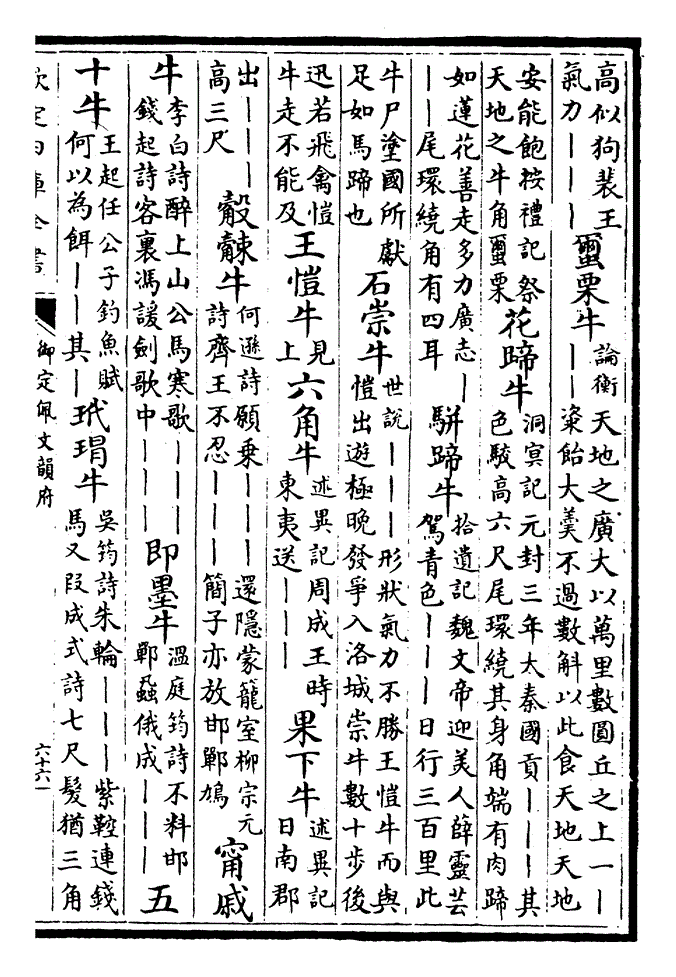 高似狗裴王
氣力｜｜｜
蠒栗牛
論衡天地之廣大以萬里數圜丘之上一｜
｜｜粢飴大羹不過數斛以此食天地天地
安能飽按禮記祭
天地之牛角蠒栗
花蹄牛
洞冥記元封三年大秦國貢｜｜｜其
色駮高六尺尾環繞其身角端有肉蹄
如蓮花善走多力廣志｜
｜｜尾環繞角有四耳
駢蹄牛
拾遺記魏文帝迎美人薛靈芸
駕青色｜｜｜日行三百里此
牛尸塗國所獻
足如馬蹄也
石崇牛
世說｜｜｜形狀氣力不勝王愷牛而與
愷出遊極晚發爭入洛城崇牛數十步後
迅若飛禽愷
牛走不能及
王愷牛
見
上
六角牛
述異記周成王時
東夷送｜｜｜
果下牛
述異記
日南郡
出｜｜｜
高三尺
觳觫牛
何遜詩願乗｜｜｜還隱蒙籠室柳宗元
詩齊王不忍｜｜｜簡子亦放邯鄲鳩
甯戚
牛
李白詩醉上山公馬寒歌｜｜｜
錢起詩客裏馮諼劍歌中｜｜｜
即墨牛
溫庭筠詩不料邯
鄲蝨俄成｜｜｜
五
十牛
王起任公子釣魚賦
何以為餌｜｜其｜
玳瑁牛
吳筠詩朱輪｜｜｜紫鞚連錢
馬又段成式詩七尺髮猶三角
欽定四庫全書
御定佩文韻府
六十六一